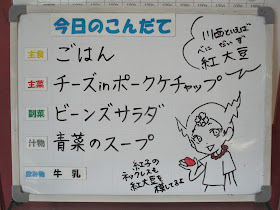 今日のこんだて
主食 ごはん
主菜 チーズinポークケチャップ
副菜 ビーンズサラダ
汁物 青菜のスープ
飲み物 牛乳
川西といえば
べに だいず
紅大豆
紅子の
ネックレスも
紅大豆を
模してるよ